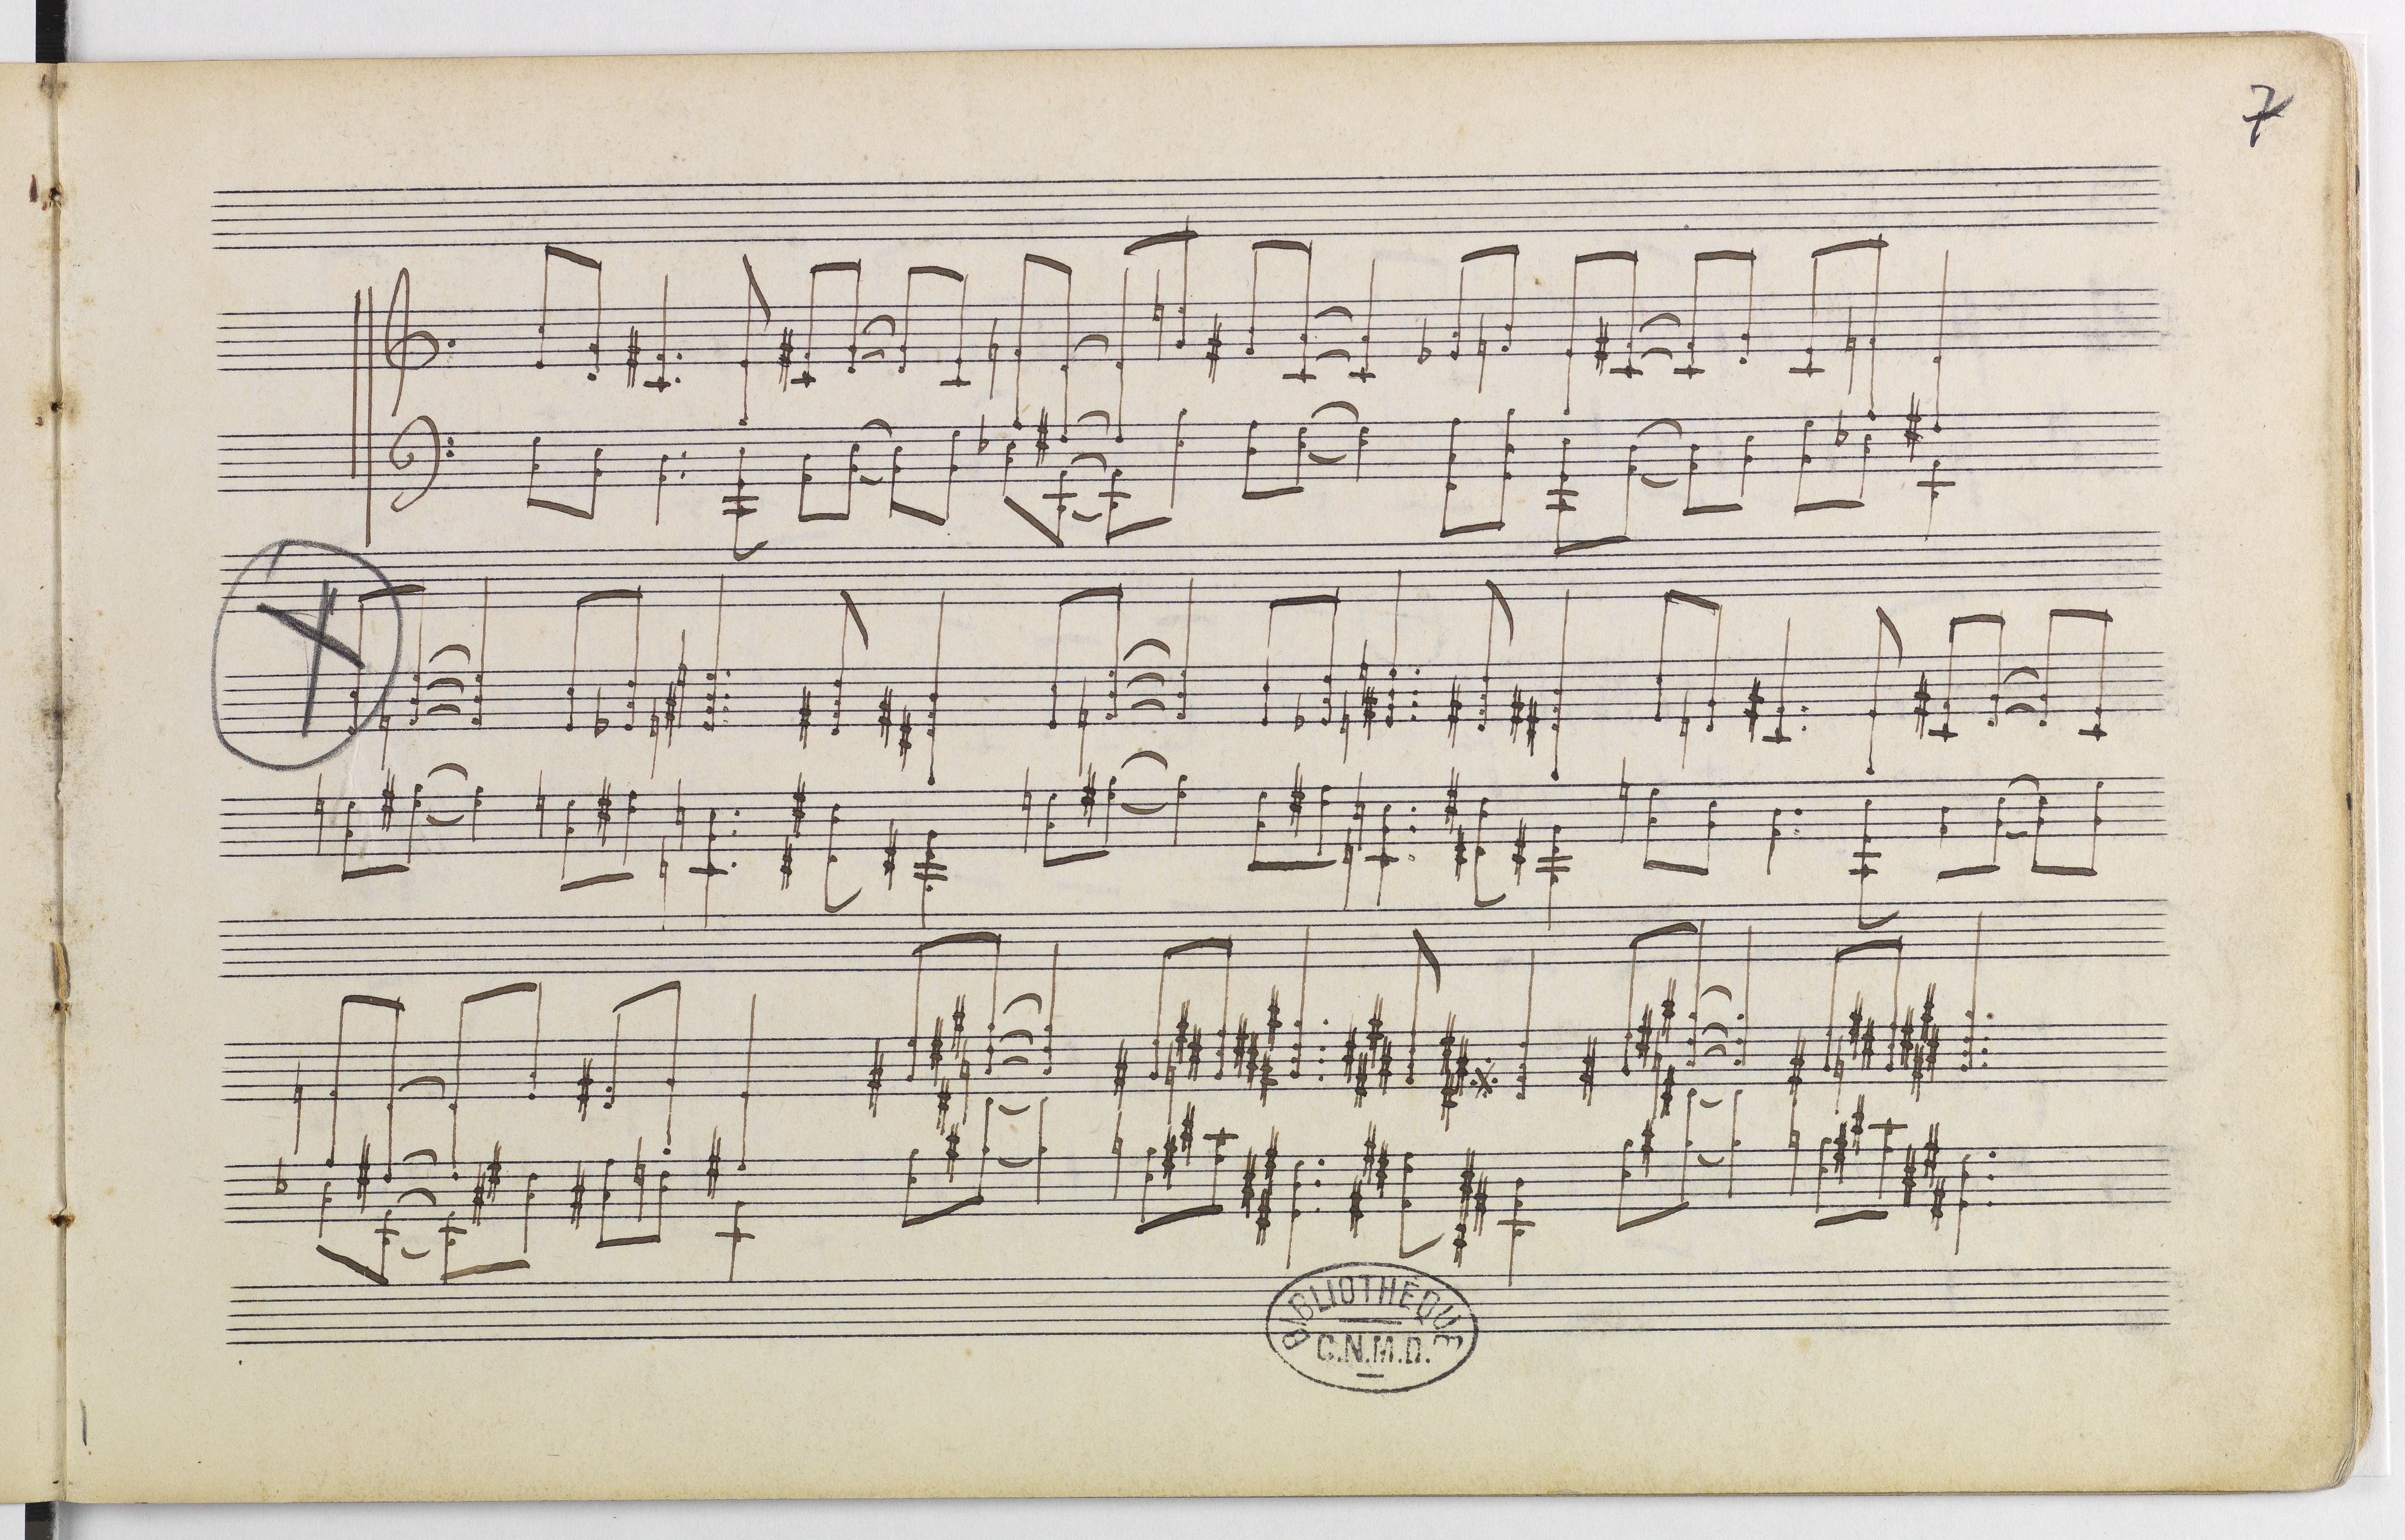 7
BIBLIOTHEQUE
C.N.M.D.